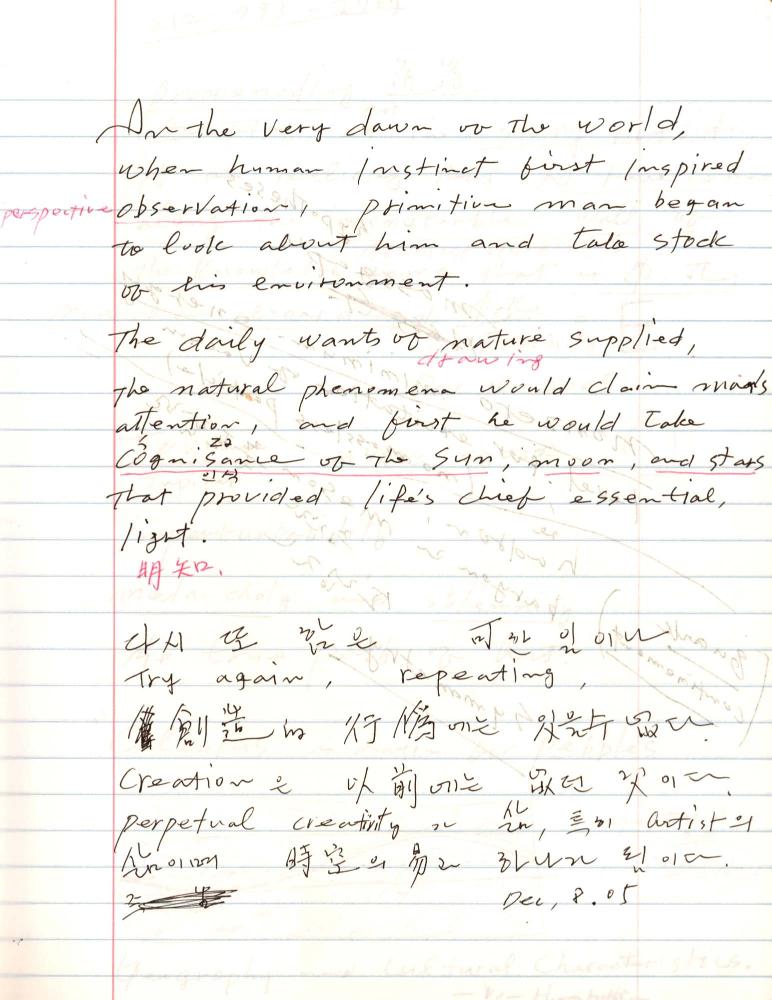 In the very dawn of the world,
when human instinct first inspired
perspective observation, primitive man began
to look about him and take stock
of his environment.
The daily wants of nature supplied,
drawing
the natural phenomena would claim man's
attention, and first he would take
Cognisance of the Sun, moon, and stars
인식
that provided life's chief essential,
light.
明知.
다시 또 함은 可한 일이나
Try again, repeating,
創造的 行爲에는 있을수 없다.
Creation은 以前에는 없던 것이다.
perpetual creativity가 삶, 특히 artist의
삶이며 時空의 易과 하나가 됨이다.
Dec, 8. 05